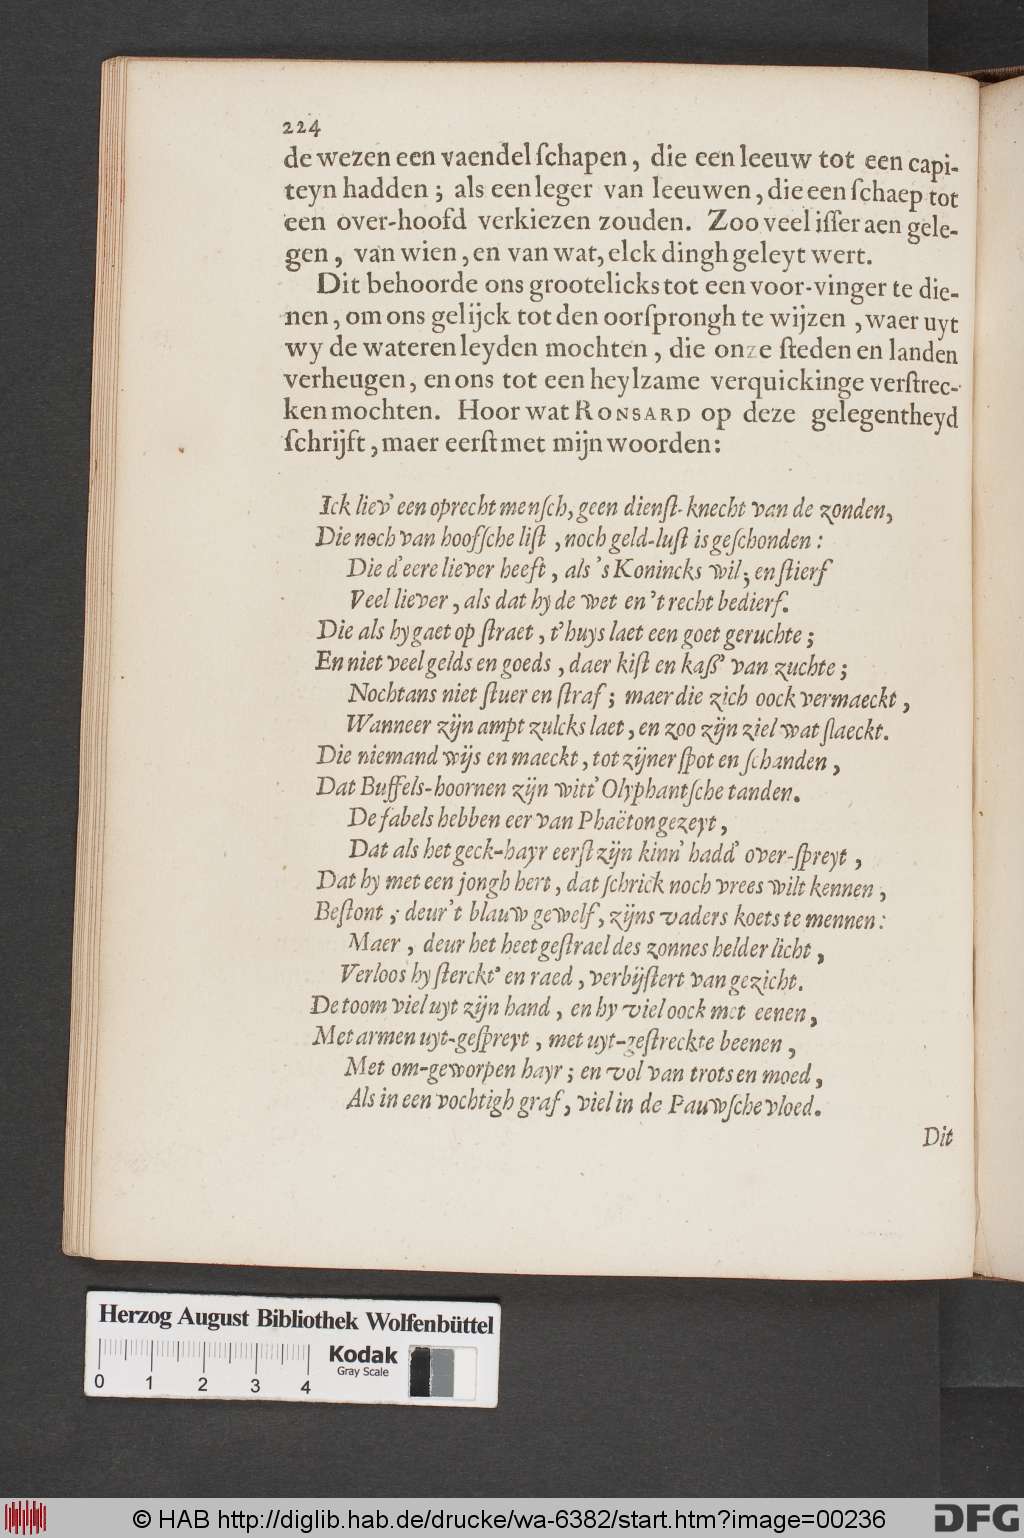 224
de wezen een vaendel ſchapen, die een leeuw tot een capi-
teyn hadden; als een leger van leeuwen, die een ſchaep tot
een over-hoofd verkiezen zouden. Zoo veel iſſer aen gele-
gen, van wien, en van wat, elck dingh geleyt wert.
Dit behoorde ons grootelicks tot een voor-vinger te die-
nen, om ons gelijck tot den oorſprongh te wijzen, waer uyt
wy de wateren leyden mochten, die onze ſteden en landen
verheugen, en ons tot een heylzame verquickinge verſtrec-
ken mochten. Hoor wat RONSARD op deze gelegentheyd
ſchrijft, maer eerſt met mijn woorden:
Ick liev' een oprecht menſch, geen dienſt-knecht van de zonden,
Die noch van hoofſche liſt, noch geld-luſt is geſchonden:
Die d'eere liever heeft, als 's Konincks wil; en ſtierf
Veel liever, als dat hy de wet en 't recht bedierf.
Die als hy gaet op ſtraet, t'huys laet een goet geruchte;
En niet veel gelds en goeds, daer kiſt en kaſſ' van zuchte;
Nochtans niet ſtuer en ſtraf; maer die zich oock vermaeckt,
Wanneer zijn ampt zulcks laet, en zoo zijn ziel wat ſlaeckt.
Die niemand wijs en maeckt, tot zijner ſpot en ſchanden,
Dat Buffels-hoornen zijn witt' Olyphantſche tanden.
De fabels hebben eer van Phaëton gezeyt,
Dat als het geck-hayr eerſt zijn kinn' hadd' over-ſpreyt,
Dat hy met een jongh hert, dat ſchrick noch vrees wilt kennen,
Beſtont, deur 't blauw gewelf, zijns vaders koets te mennen:
Maer, deur het heet geſtrael des zonnes helder licht,
Verloos hy ſterckt' en raed, verbijſtert van gezicht.
De toom viel uyt zijn hand, en hy viel oock met eenen,
Met armen uyt-geſpreyt, met uyt-geſtreckte beenen,
Met om-geworpen hayr; en vol van trots en moed,
Als in een vochtigh graf, viel in de Pauwſche vloed.
Dit
Herzog August Bibliothek Wolfenbüttel
0 1 2 3 4
Kodak
Gray Scale
© HAB http://diglib.hab.de/drucke/wa-6382/start.htm?image=00236
DFG